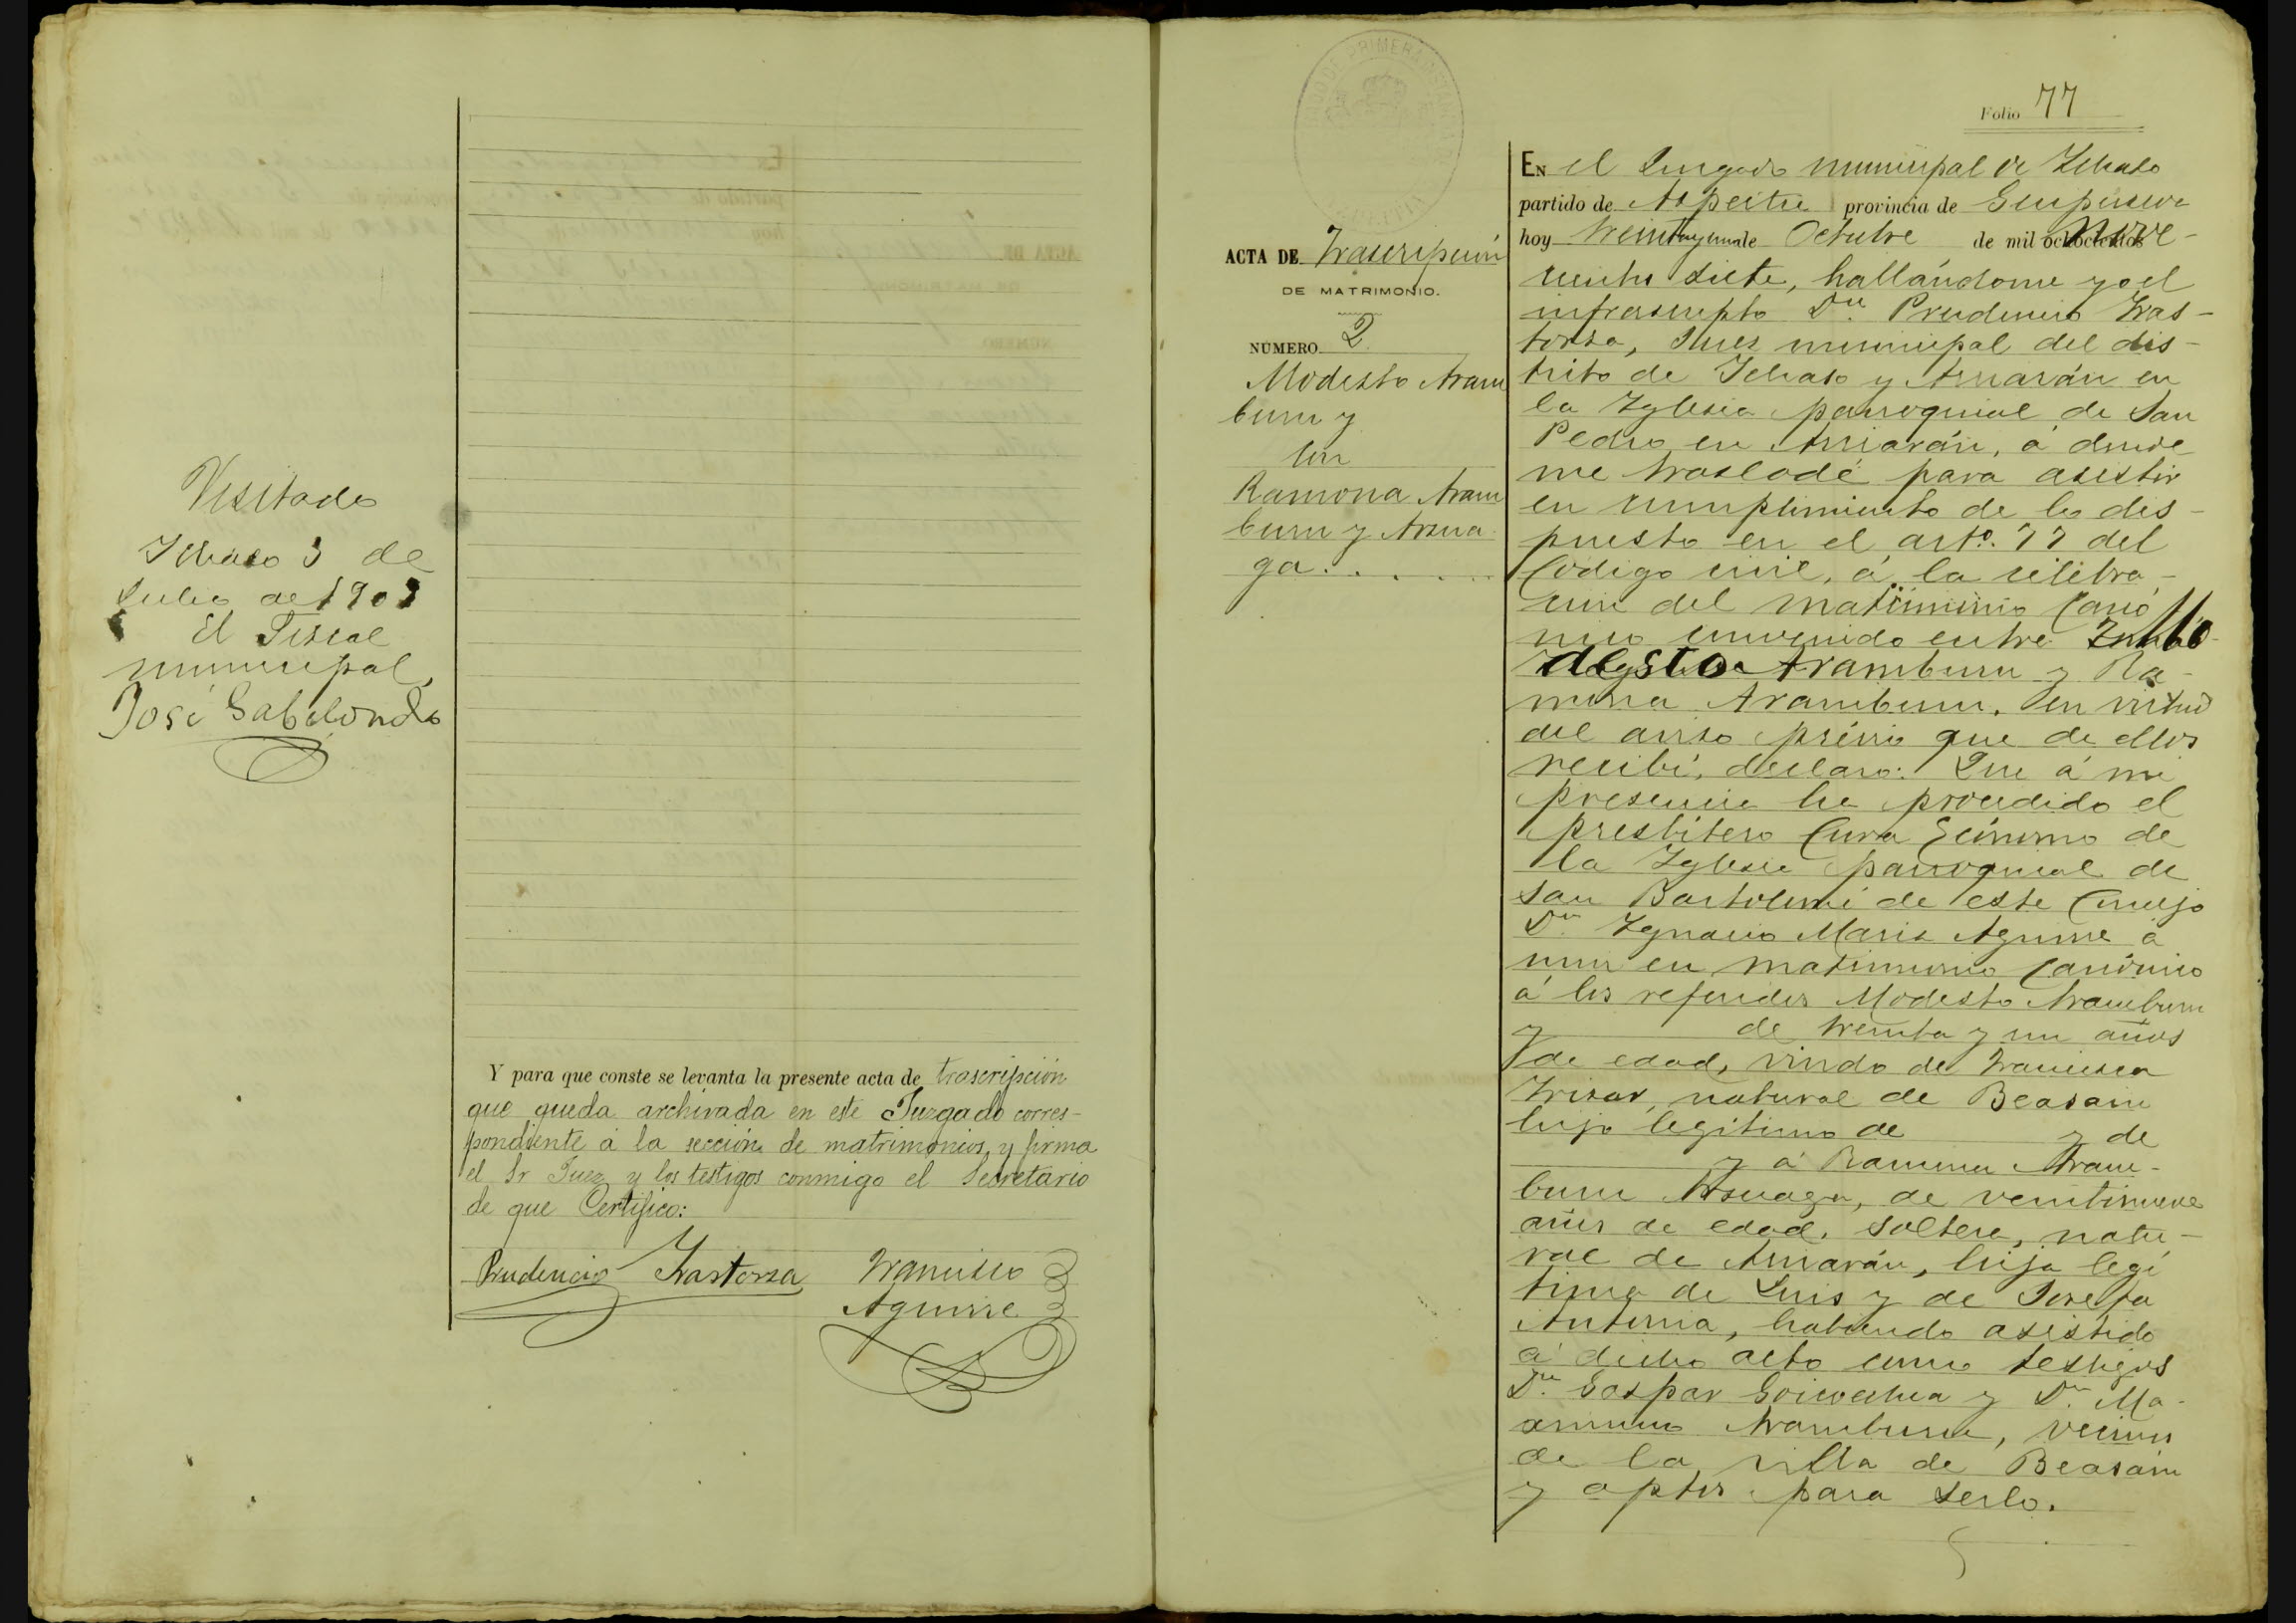 Visitado
Ichaso 3 de
Julio de 1903
El Fiscal
municipal,
José Gabilondo
Y para que conste se levanta la presente acta de trascripción
que queda archivada en este Juzgado corres-
pondiente á la sección de matrimonios, y firma
el Sr Juez y los testigos conmigo el Secretario
de que Certifico:
Prudencio Irastorza Francisco
Aguirre
Folio 77
ACTA DE Trascripción
DE MATRIMONIO.
NÚMERO 2
Modesto Aram
buru y
con
Ramona Aram
buru y Arsua
ga.....
EN el Juzgado municipal de Ichaso
partido de Azpeitia provincia de Guipuzcoa
hoy treinta y uno de Octubre de mil ochocientos nove-
cientos siete, hallándome yo el
infrascripto Dn. Prudencio Iras-
torza, Juez municipal del dis-
trito de Ichaso y Arriarán en
la Iglesia parroquial de San
Pedro en Arriarán, á donde
me trasladé para asistir
en cumplimiento de lo dis-
puesto en el arto. 77 del
Código civil, á la celebra-
ción del matrimonio canó
nico convenido entre Mo-
desto Aramburu y Ra-
mona Aramburu, en virtud
del aviso prévio que de ellos
recibí, declaro: Que á mi
presencia ha procedido el
presbítero Cura Ecónomo de
la Iglesia parroquial de
San Bartolomé de este Concejo
Dn. Ignacio Maria Aguirre á
unir en matrimonio canónico
á los referidos Modesto Aramburu
y de treinta y un años
de edad, viudo de Francisca
Irizar, natural de Beasain
hijo legítimo de y de
y á Ramona Aram-
buru Arsuaga, de veintinueve
años de edad, soltera, natu-
ral de Arriarán, hija legí
tima de Luis y de Josefa
Antonia, habiendo asistido
á dicho acto como testigos
Dn. Gaspar Goicoechea y Dn. Ma-
ximino Aramburu, vecinos
de la villa de Beasain
y aptos para serlo.